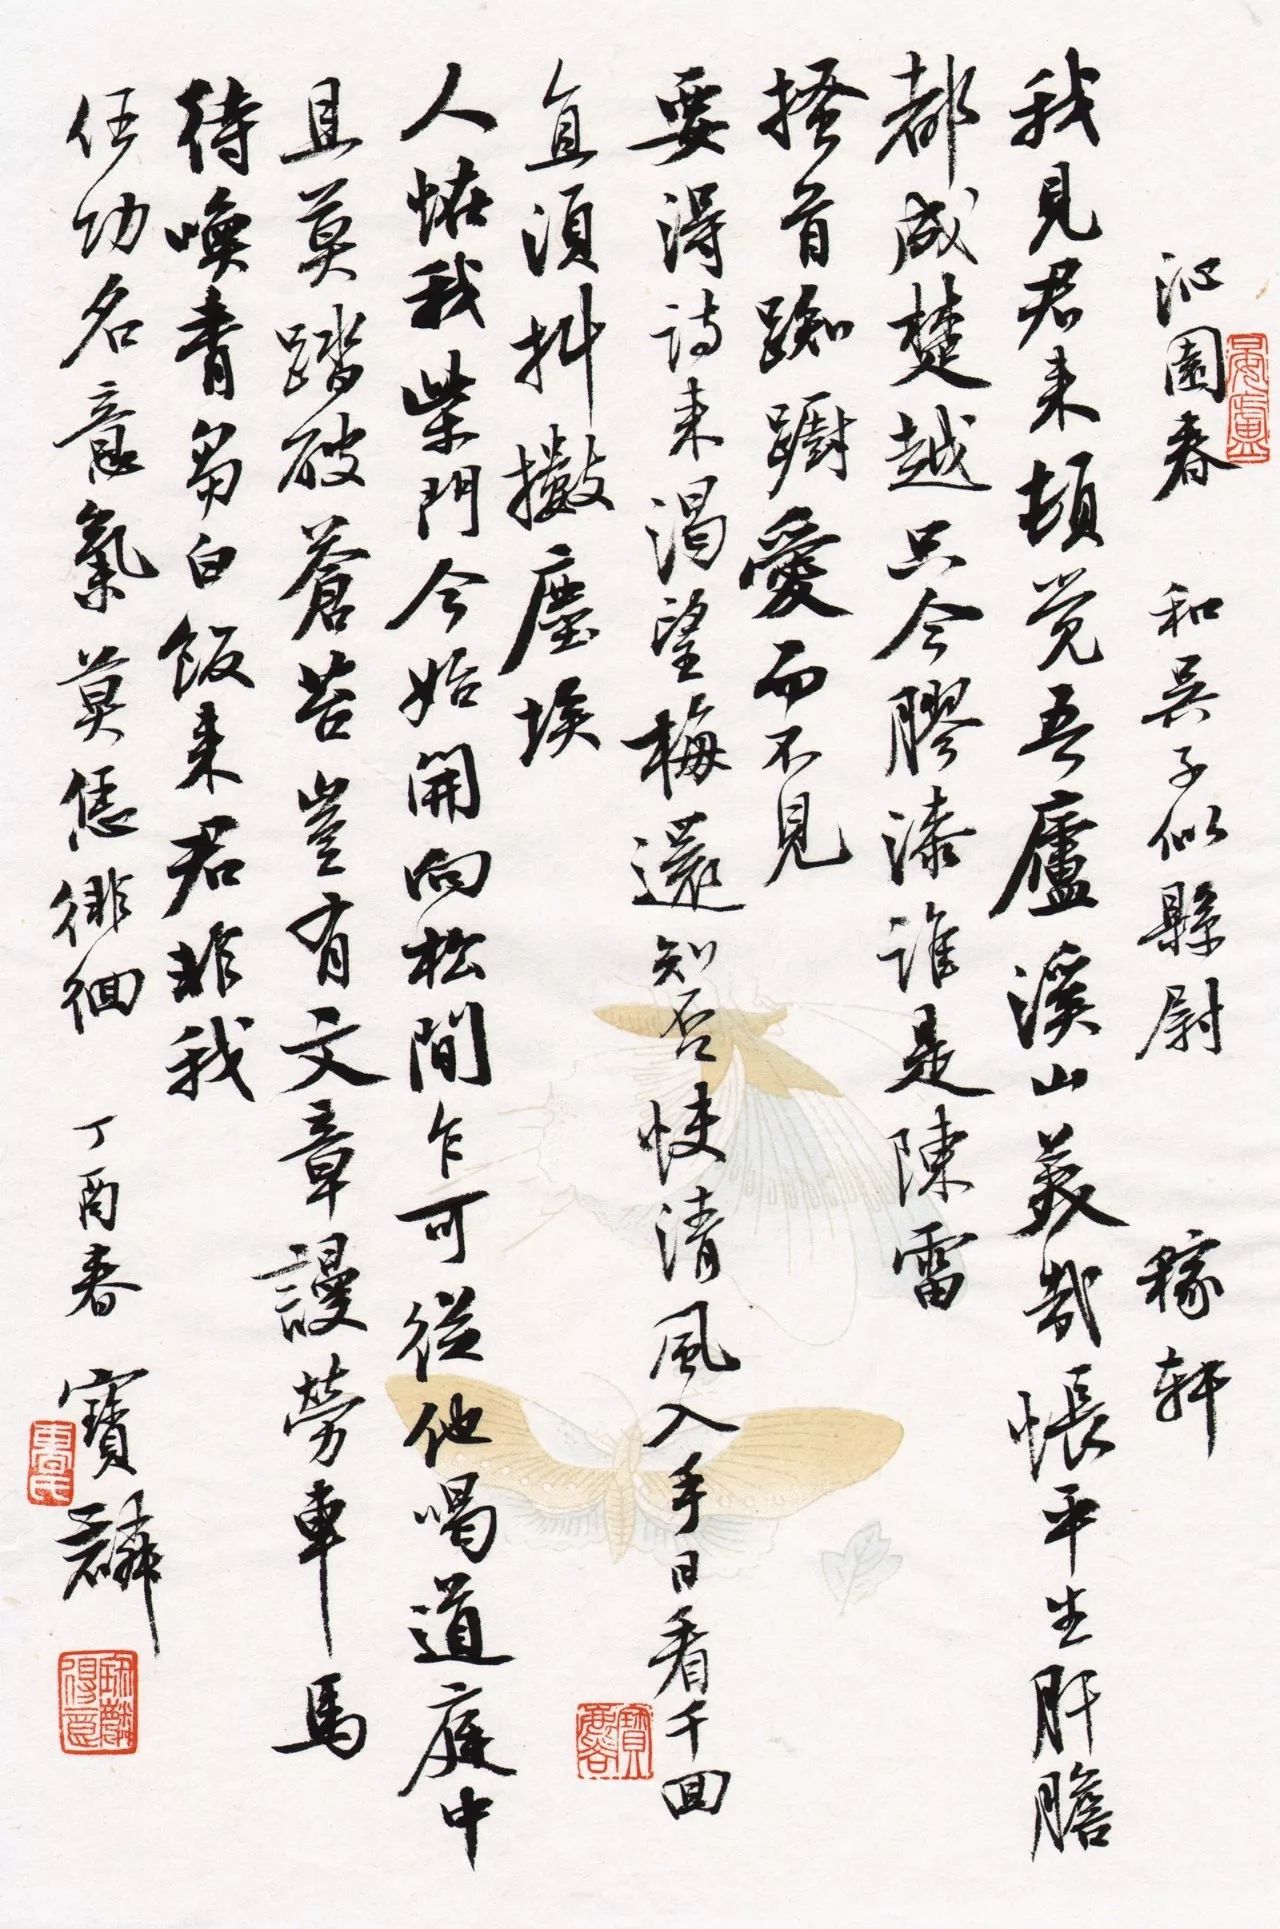 沁園春 和吳子似縣尉 稼軒
我見君来頓觉吾廬溪山美哉悵平生肝膽
都成楚越只今膠漆谁是陳雷
搔首踟躕愛而不見
要得詩来渴望梅還知否快清風入手日看千回
直須抖擞塵埃
人怪我柴門今始開向松間乍可從他喝道庭中
且莫踏破蒼苔豈有文章謾勞車馬
待喚青芻白飯来君非我
任功名意氣莫恁徘徊 丁酉春 寶麟